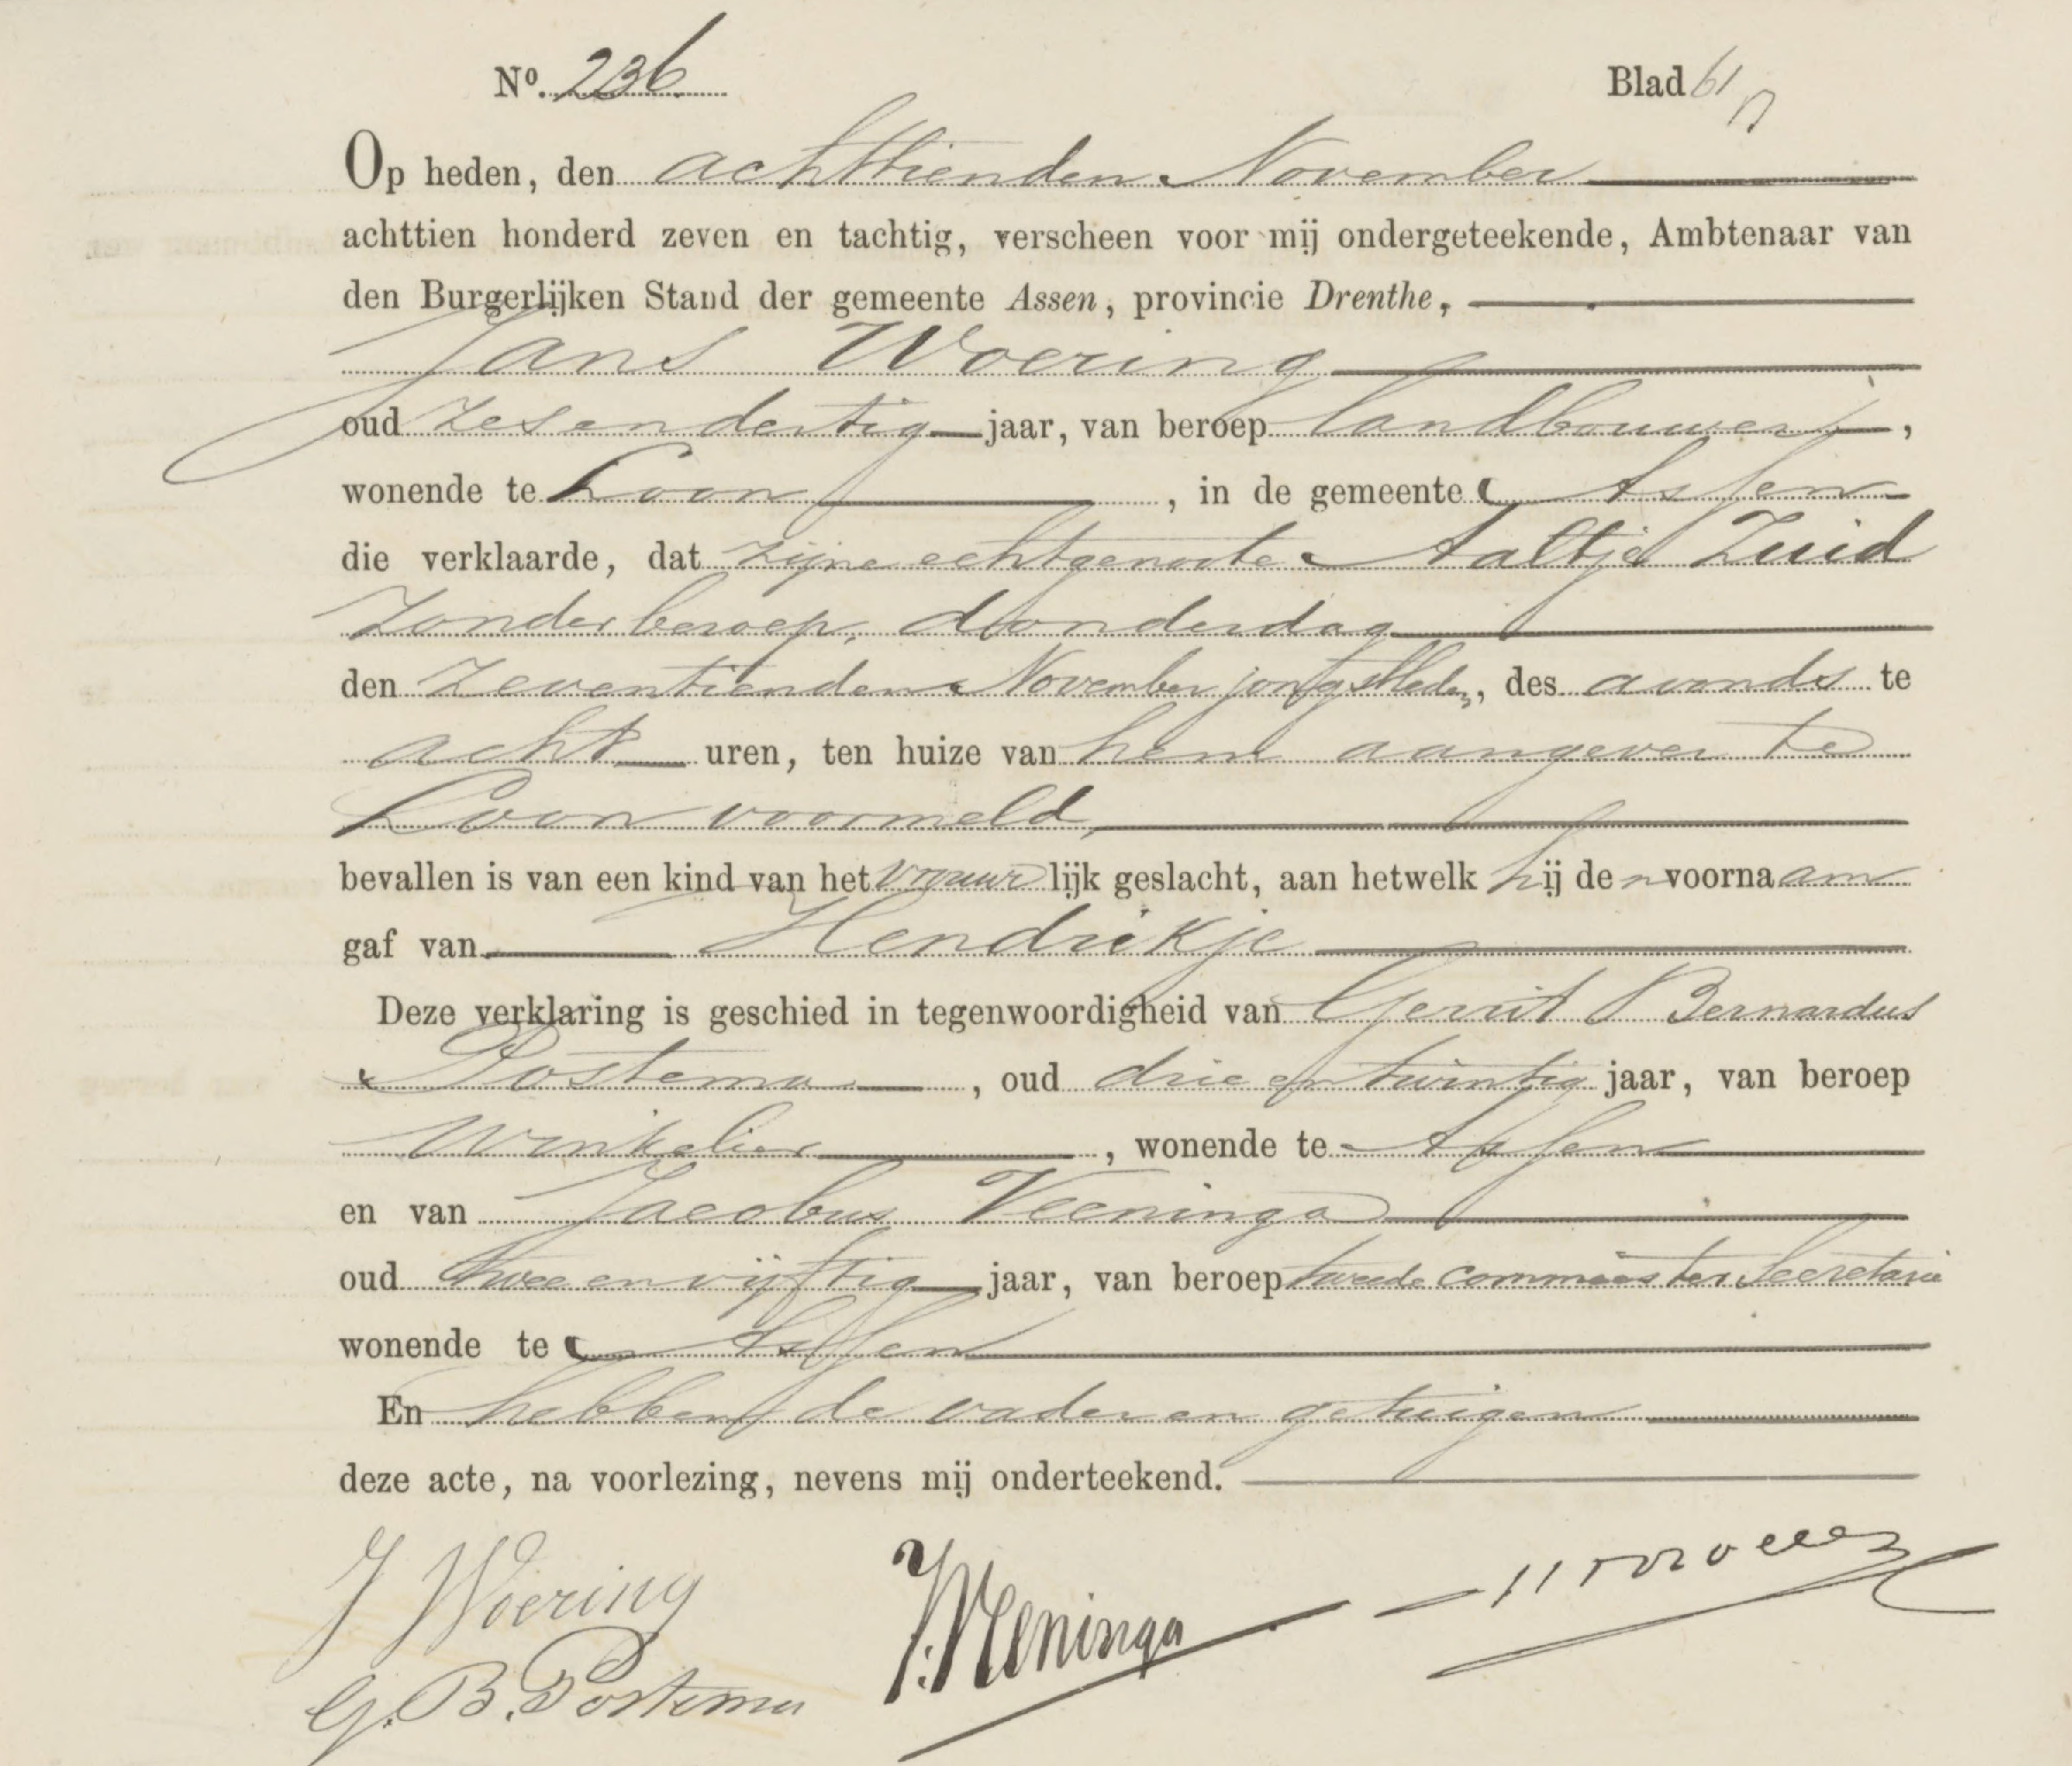 No. 236 Blad 61
Op heden, den achttienden November
achttien honderd zeven en tachtig, verscheen voor mij ondergeteekende, Ambtenaar van
den Burgerlijken Stand der gemeente Assen, provincie Drenthe,
Jans Woering
oud zesendertig jaar, van beroep landbouwer,
wonende te Loon, in de gemeente Assen
die verklaarde, dat zijne echtgenoote Aaltje Zuid
zonder beroep, donderdag
den zeventienden November jongstleden, des avonds te
acht uren, ten huize van hem aangever te
Loon voormeld,
bevallen is van een kind van het vrouwlijk geslacht, aan hetwelk hij den voornaam
gaf van Hendrikje
Deze verklaring is geschied in tegenwoordigheid van Gerrit Bernardus
Postema, oud drie en twintig jaar, van beroep
Winkelier, wonende te Assen
en van Jacobus Veeninga
oud twee en vijftig jaar, van beroep tweede commies ter Secretarie
wonende te Assen
En hebben de vader en getuigen
deze acte, na voorlezing, nevens mij onderteekend.
J Woering
J. Veeninga
G. B. Postema